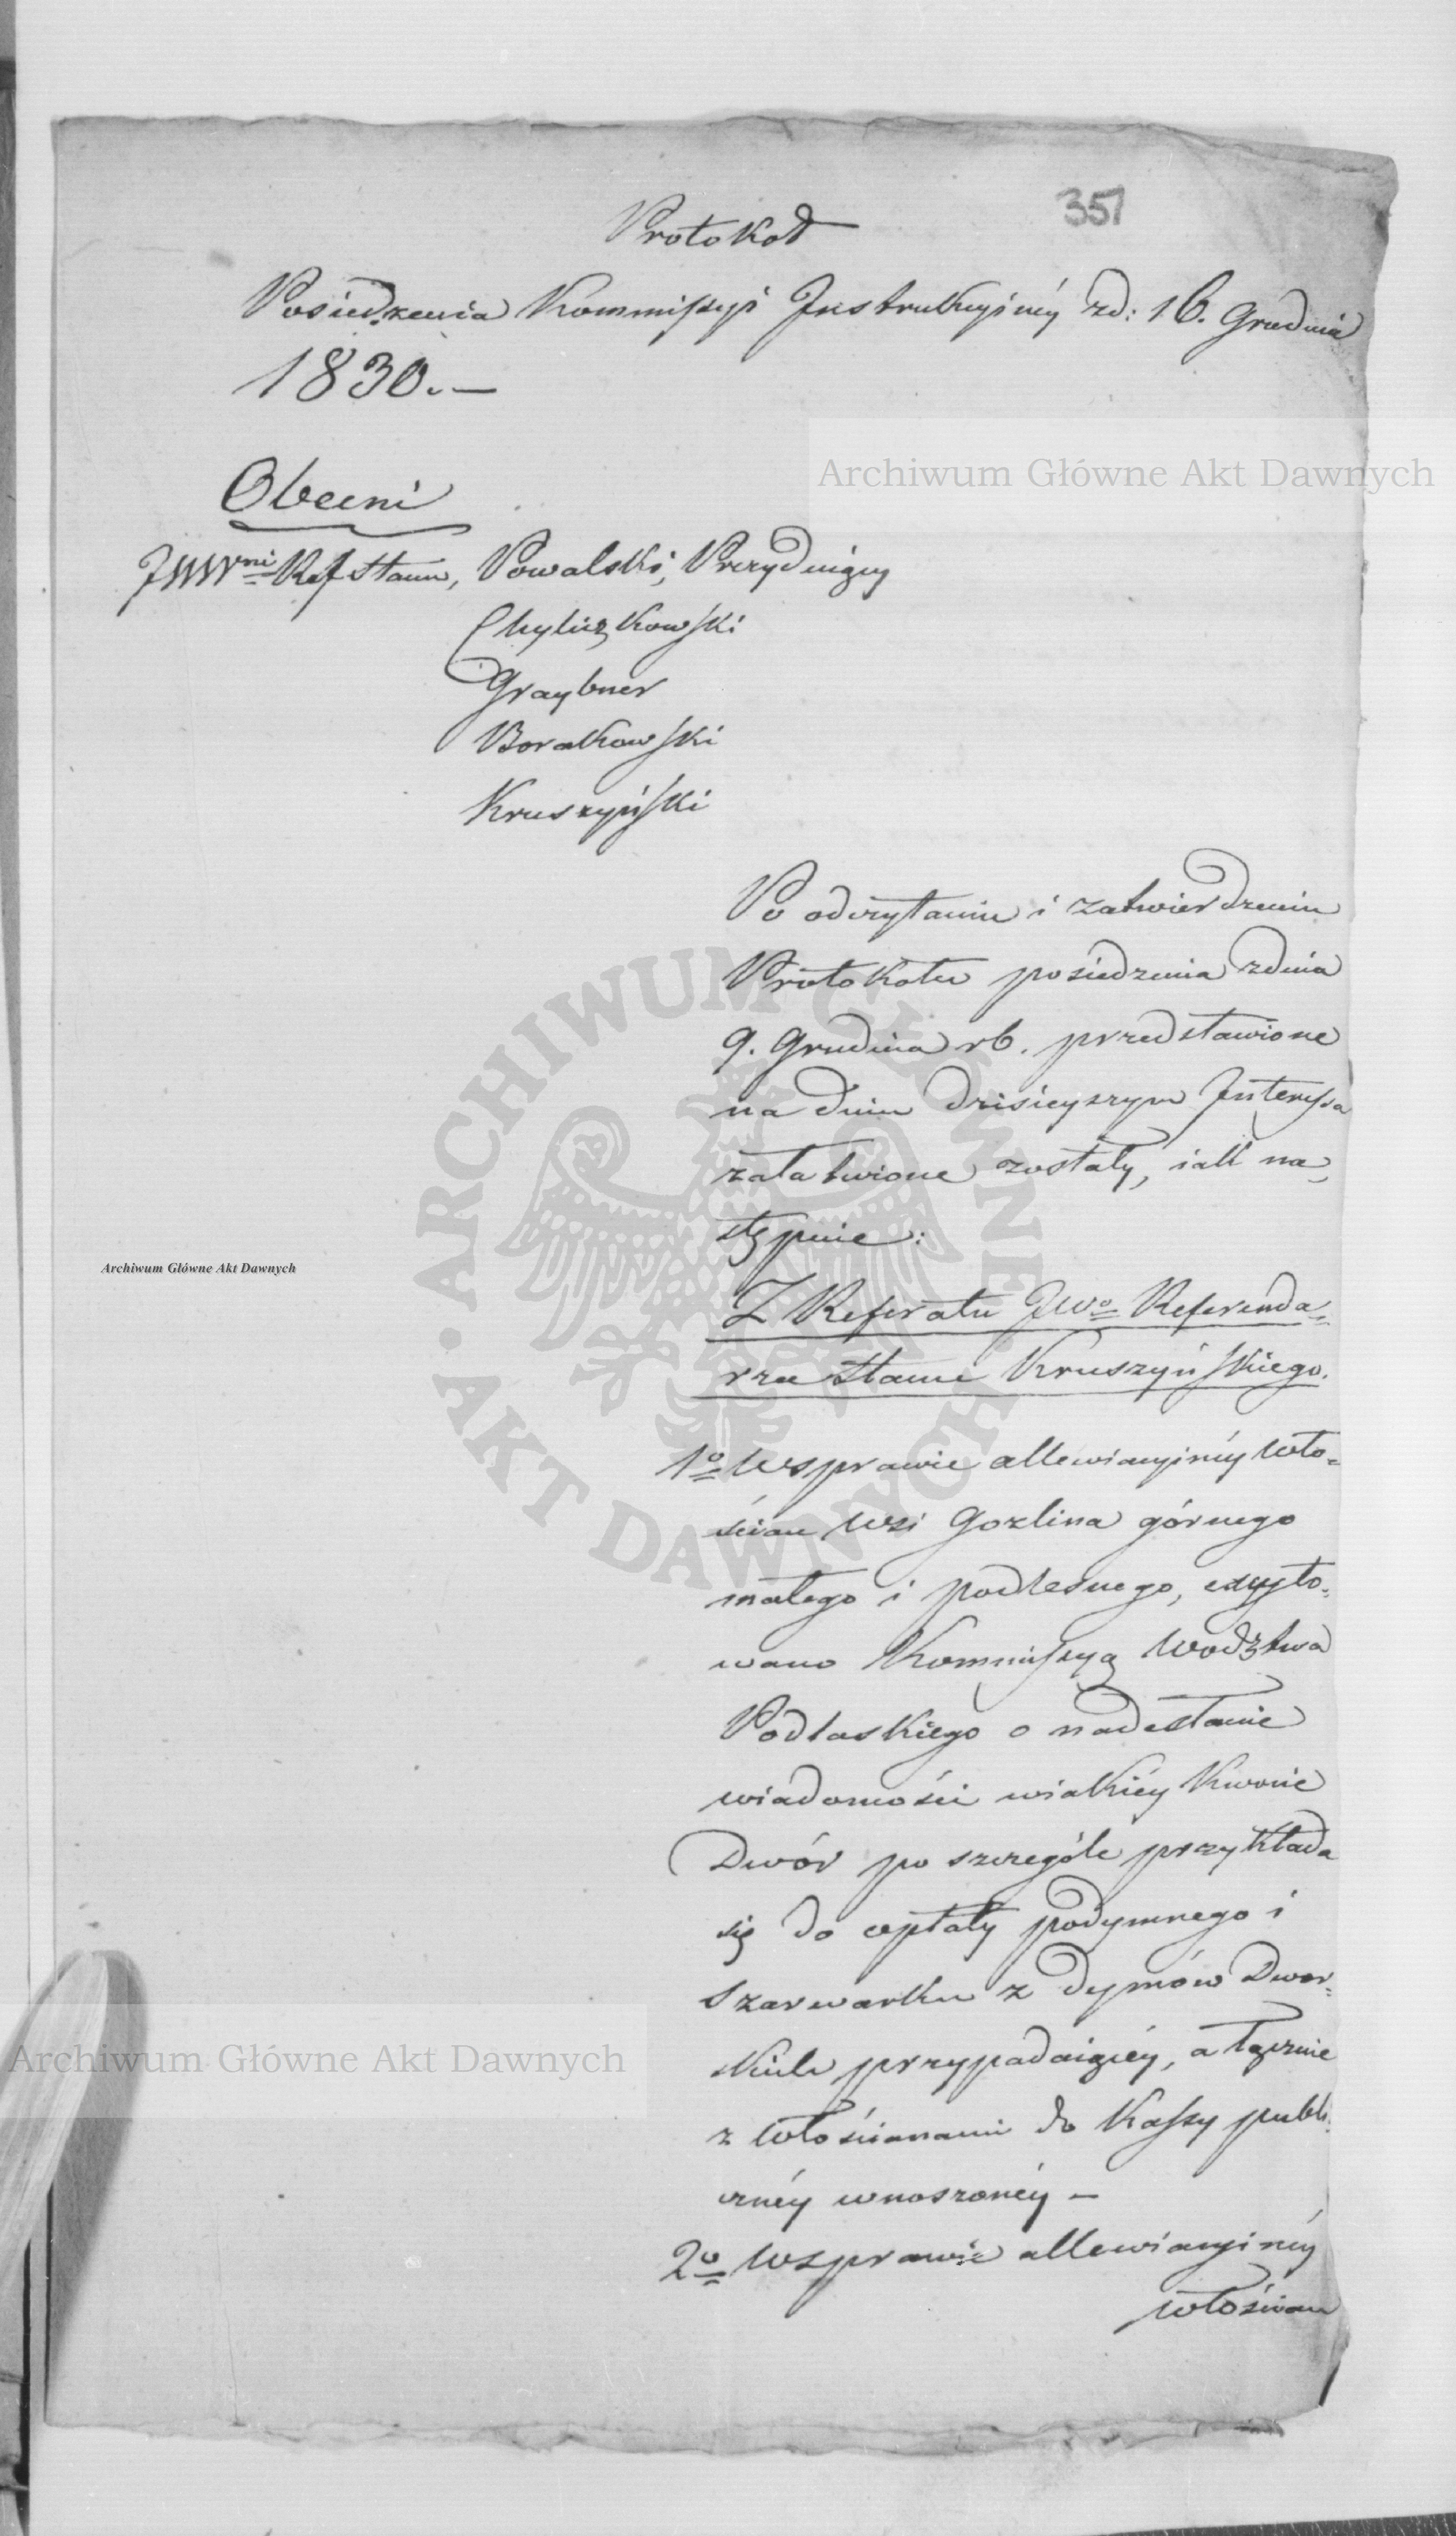 357
Protokoł
Posiedzenia Kommissyi Instrukcyinéy zd: 16. Grudnia
1830.—
Archiwum Główne Akt Dawnych
Obecni
JWWni Ref Stanu, Powalski, Prezyduiący
Chyliczkowski
Graybner
Borakowski
Kruszyński
Po odczytaniu i zatwierdzeniu
Protokołu posiedzenia zdnia
9. Grudnia rb. przedstawione
na dniu dzisieyszym Interessa
załatwione zostały, iak na,
stępnie:
Archiwum Główne Akt Dawnych
Z Referatu JWo Referenda=
rza Stanu Kruszyńskiego.
1o Wsprawie allewiacyinéy Wło=
ścian Wsi Gozlina górnego
małego i podlesnego, excyto=
wano Kommissyą Wodztwa
Podlaskiego o nadesłanie
wiadomości wiakiéy kwocie
Dwór po szczególe przykłada
się do opłaty podymnego i
Szarwarku z dymów Dwor=
skich przypadaiącéy, a łącznie
z Włościanami do Kassy publi=
cznéy wnoszonéy —
2o Wsprawie allewiacyinéy
włościan
Archiwum Główne Akt Dawnych
ARCHIWUM GŁÓWNE • AKT DAWNYCH •